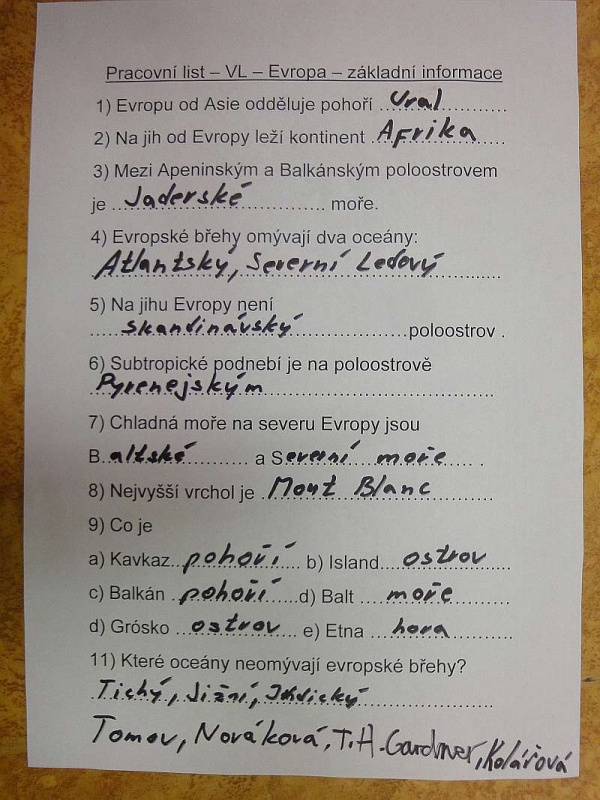 Pracovní list – VL – Evropa – základní informace
1) Evropu od Asie odděluje pohoří Ural
2) Na jih od Evropy leží kontinent Afrika
3) Mezi Apeninským a Balkánským poloostrovem
je Jaderské moře.
4) Evropské břehy omývají dva oceány:
Atlantský, Severní Ledový
5) Na jihu Evropy není
skandinávský poloostrov .
6) Subtropické podnebí je na poloostrově
Pyrenejským
7) Chladná moře na severu Evropy jsou
Baltské a Severní moře .
8) Nejvyšší vrchol je Mont Blanc
9) Co je
a) Kavkaz pohoří b) Island ostrov
c) Balkán pohoří d) Balt moře
d) Grósko ostrov e) Etna hora
11) Které oceány neomývají evropské břehy?
Tichý, Jižní, Indický
Tomov, Nováková, T.H. Gardner, Kolářová